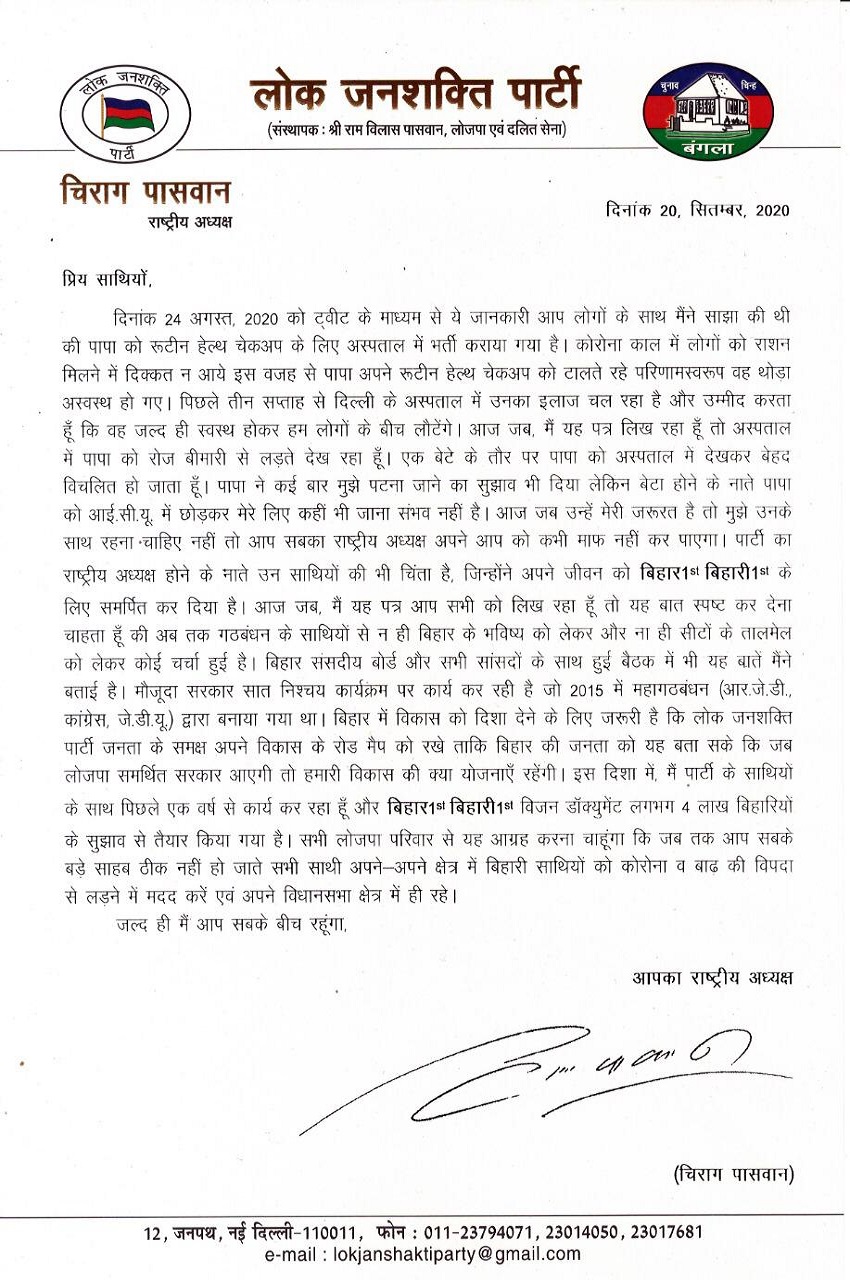 लोक जनशक्ति
पार्टी
लोक जनशक्ति पार्टी
(संस्थापक : श्री राम विलास पासवान, लोजपा एवं दलित सेना)
चुनाव चिन्ह
बंगला
चिराग पासवान
राष्ट्रीय अध्यक्ष
दिनांक 20, सितम्बर, 2020
प्रिय साथियों,
दिनांक 24 अगस्त, 2020 को ट्वीट के माध्यम से ये जानकारी आप लोगों के साथ मैंने साझा की थी
की पापा को रूटीन हेल्थ चेकअप के लिए अस्पताल में भर्ती कराया गया है। कोरोना काल में लोगों को राशन
मिलने में दिक्कत न आये इस वजह से पापा अपने रूटीन हेल्थ चेकअप को टालते रहे परिणामस्वरूप वह थोड़ा
अस्वस्थ हो गए। पिछले तीन सप्ताह से दिल्ली के अस्पताल में उनका इलाज चल रहा है और उम्मीद करता
हूँ कि वह जल्द ही स्वस्थ होकर हम लोगों के बीच लौटेंगे। आज जब, मैं यह पत्र लिख रहा हूँ तो अस्पताल
में पापा को रोज बीमारी से लड़ते देख रहा हूँ। एक बेटे के तौर पर पापा को अस्पताल में देखकर बेहद
विचलित हो जाता हूँ। पापा ने कई बार मुझे पटना जाने का सुझाव भी दिया लेकिन बेटा होने के नाते पापा
को आई.सी.यू. में छोड़कर मेरे लिए कहीं भी जाना संभव नहीं है। आज जब उन्हें मेरी जरूरत है तो मुझे उनके
साथ रहना चाहिए नहीं तो आप सबका राष्ट्रीय अध्यक्ष अपने आप को कभी माफ नहीं कर पाएगा। पार्टी का
राष्ट्रीय अध्यक्ष होने के नाते उन साथियों की भी चिंता है, जिन्होंने अपने जीवन को बिहार1st बिहारी1st के
लिए समर्पित कर दिया है। आज जब, मैं यह पत्र आप सभी को लिख रहा हूँ तो यह बात स्पष्ट कर देना
चाहता हूँ की अब तक गठबंधन के साथियों से न ही बिहार के भविष्य को लेकर और ना ही सीटों के तालमेल
को लेकर कोई चर्चा हुई है। बिहार संसदीय बोर्ड और सभी सांसदों के साथ हुई बैठक में भी यह बातें मैंने
बताई है। मौजूदा सरकार सात निश्चय कार्यक्रम पर कार्य कर रही है जो 2015 में महागठबंधन (आर.जे.डी.,
कांग्रेस, जे.डी.यू.) द्वारा बनाया गया था। बिहार में विकास को दिशा देने के लिए जरूरी है कि लोक जनशक्ति
पार्टी जनता के समक्ष अपने विकास के रोड मैप को रखे ताकि बिहार की जनता को यह बता सके कि जब
लोजपा समर्थित सरकार आएगी तो हमारी विकास की क्या योजनाएँ रहेंगी। इस दिशा में, मैं पार्टी के साथियों
के साथ पिछले एक वर्ष से कार्य कर रहा हूँ और बिहार1st बिहारी1st विजन डॉक्युमेंट लगभग 4 लाख बिहारियों
के सुझाव से तैयार किया गया है। सभी लोजपा परिवार से यह आग्रह करना चाहूंगा कि जब तक आप सबके
बड़े साहब ठीक नहीं हो जाते सभी साथी अपने–अपने क्षेत्र में बिहारी साथियों को कोरोना व बाढ़ की विपदा
से लड़ने में मदद करें एवं अपने विधानसभा क्षेत्र में ही रहे।
जल्द ही मैं आप सबके बीच रहूंगा,
आपका राष्ट्रीय अध्यक्ष
(चिराग पासवान)
12, जनपथ, नई दिल्ली–110011, फोन : 011-23794071, 23014050, 23017681
e-mail : lokjanshaktiparty@gmail.com